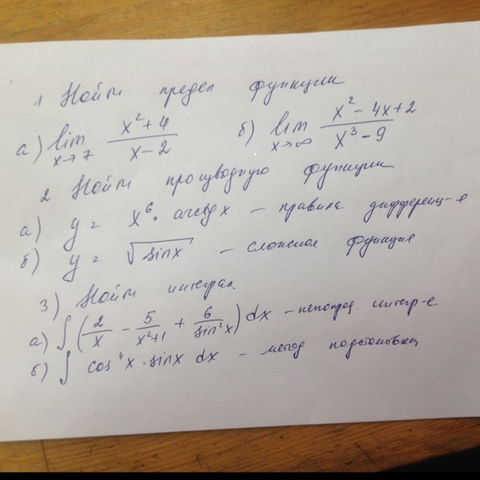 1 Найти предел функции
а) lim x→7 (x²+4)/(x-2) б) lim x→∞ (x²-4x+2)/(x³-9)
2 Найти производную функции
а) y = x⁶·arctgx - правила дифференц-я
б) y = √sinx - сложная функция
3) Найти интеграл
а) ∫(2/x - 5/(x²+1) + 6/sin²x)dx - непопред. интегр-е
б) ∫ cos⁴x·sinx dx - метод подстановки